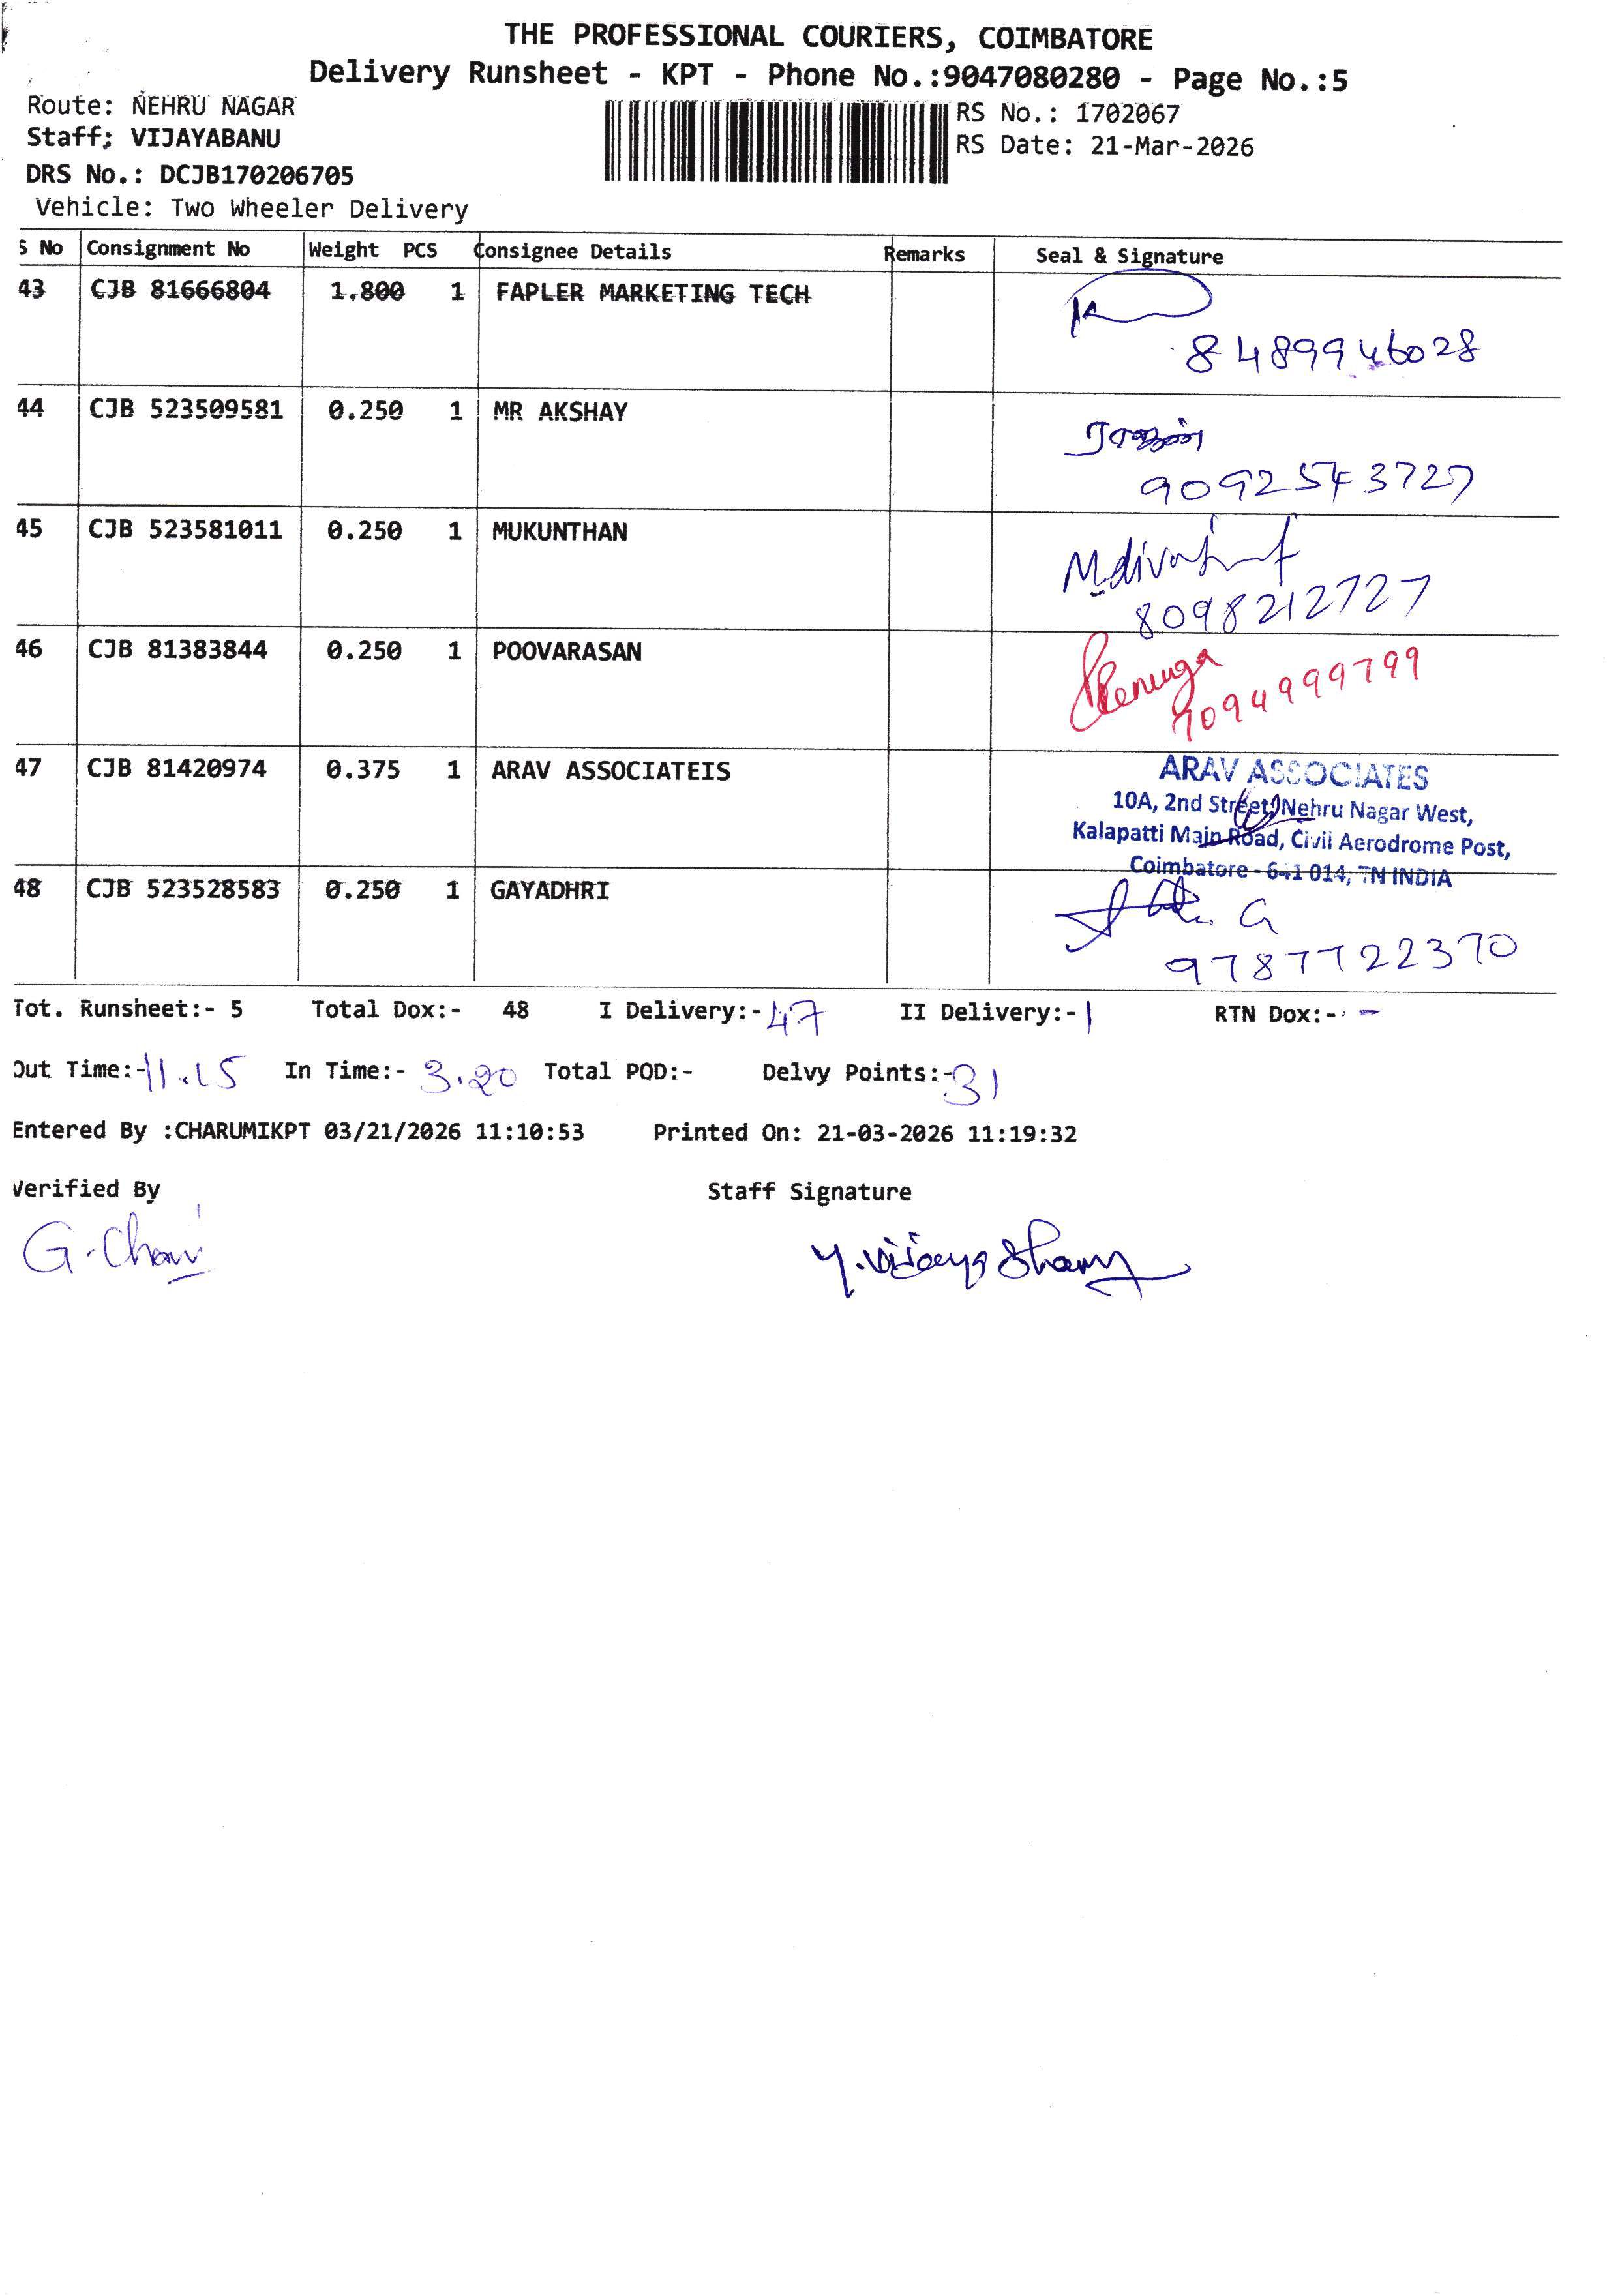 THE PROFESSIONAL COURIERS, COIMBATORE
Delivery Runsheet - KPT - Phone No.:9047080280 - Page No.:5
Route: NEHRU NAGAR
RS No.: 1702067
Staff: VIJAYABANU
RS Date: 21-Mar-2026
DRS No.: DCJB170206705
Vehicle: Two Wheeler Delivery
S No Consignment No Weight PCS Consignee Details Remarks Seal & Signature
43 CJB 81666804 1.800 1 FAPLER MARKETING TECH
8489946028
44 CJB 523509581 0.250 1 MR AKSHAY
9092543727
45 CJB 523581011 0.250 1 MUKUNTHAN
8098212727
46 CJB 81383844 0.250 1 POOVARASAN
Renuga
9094999799
47 CJB 81420974 0.375 1 ARAV ASSOCIATEIS
ARAV ASSOCIATES
10A, 2nd Street, Nehru Nagar West,
Kalapatti Main Road, Civil Aerodrome Post,
Coimbatore - 641 014, TN INDIA
48 CJB 523528583 0.250 1 GAYADHRI
G
9787722370
Tot. Runsheet:- 5 Total Dox:- 48 I Delivery:- 47 II Delivery:- 1 RTN Dox:- -
Out Time:- 11.15 In Time:- 3.20 Total POD:- Delvy Points:- 31
Entered By :CHARUMIKPT 03/21/2026 11:10:53 Printed On: 21-03-2026 11:19:32
Verified By Staff Signature